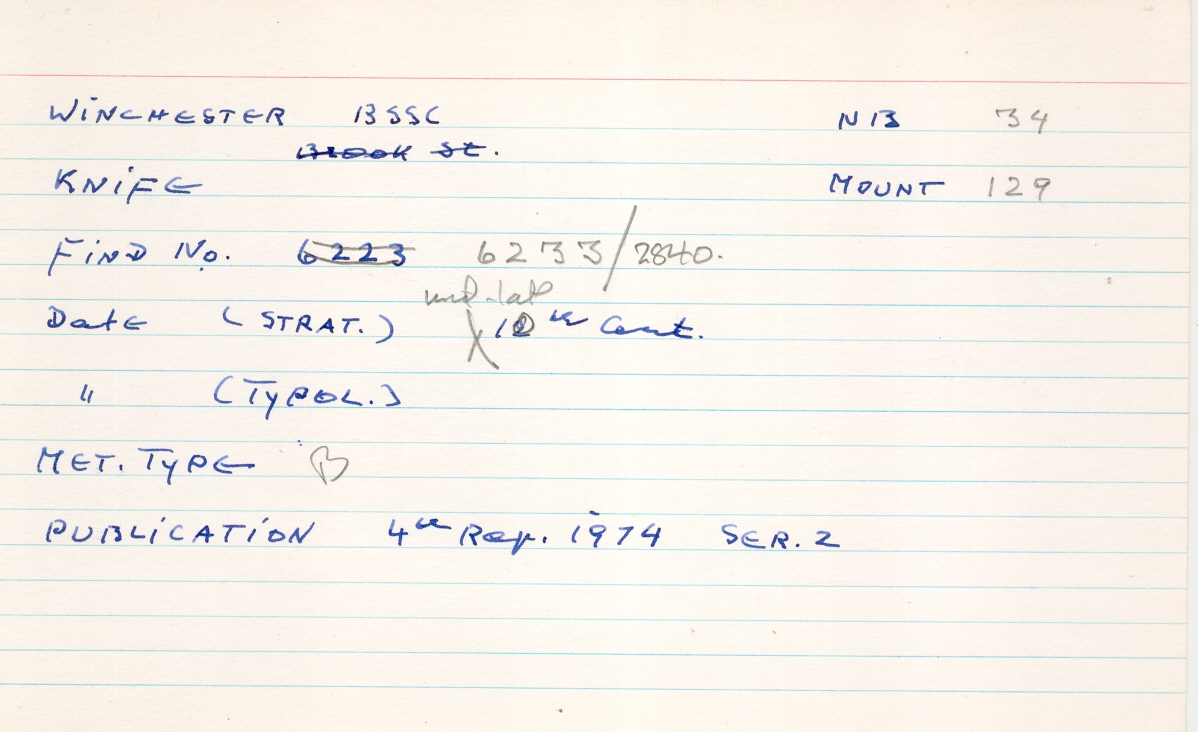 WINCHESTER BSSC NB 34
Brook St.
KNiFE MOUNT 129
FiND No. 6223 6233/2840.
mid-late
Date (STRAT.) 10th Cent.
" (TYPOL.)
MET. TYPE B
PUBLiCATiON 4th Rep. 1974 SER. 2